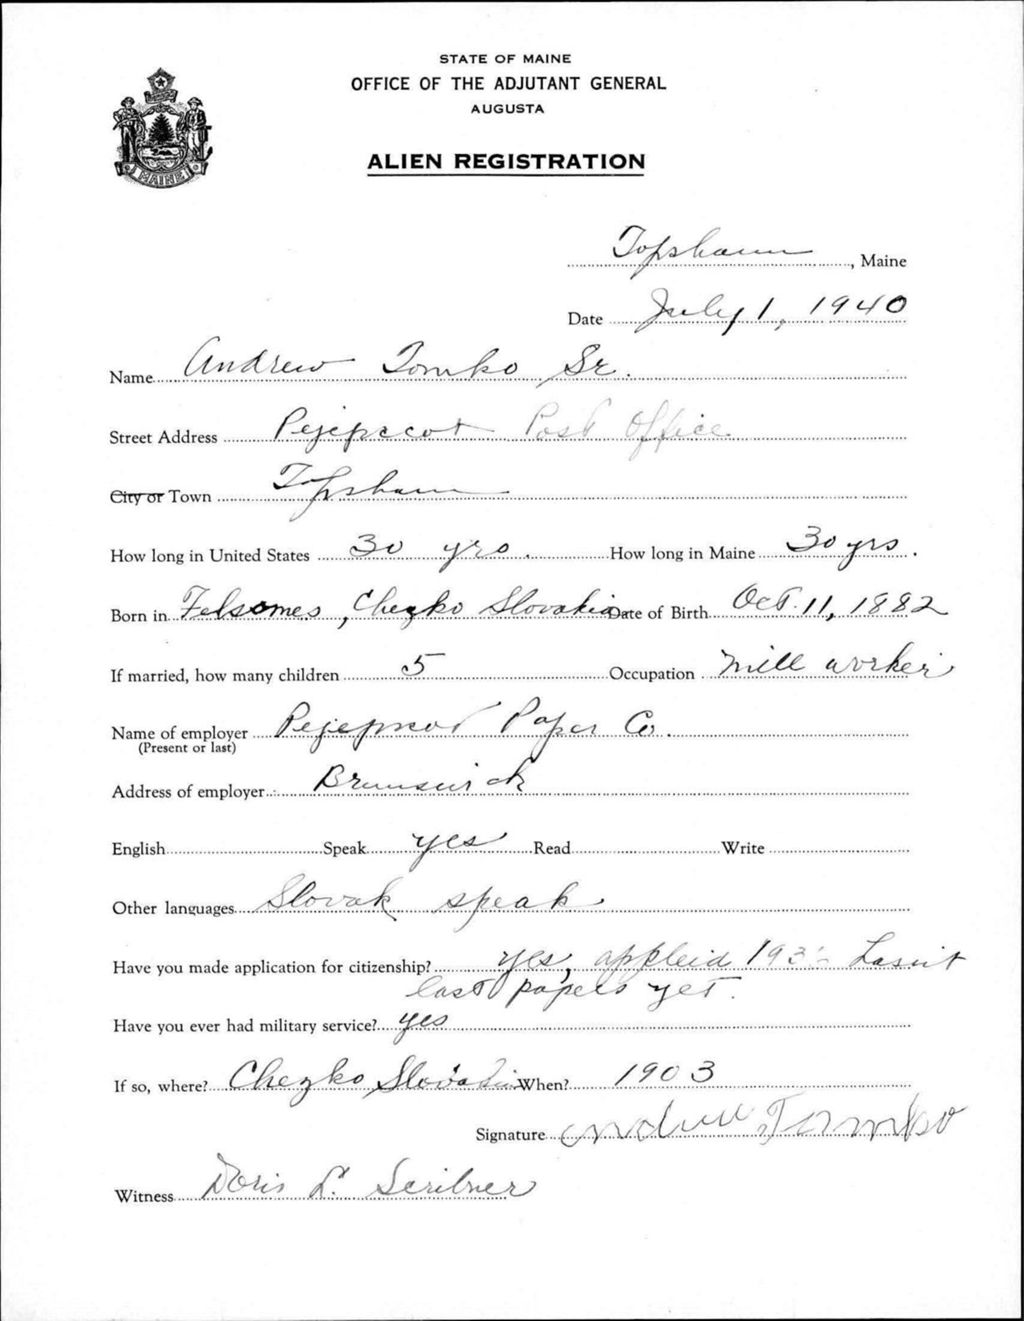 STATE OF MAINE
OFFICE OF THE ADJUTANT GENERAL
AUGUSTA
ALIEN REGISTRATION
MAINE
Topsham, Maine
Date July 1, 1940
Name Andrew Tomko Sr.
Street Address Pejepscot Post Office
City or Town Topsham
How long in United States 30 yrs. How long in Maine 30 yrs.
Born in Felsomes, Chezko Slovakia Date of Birth Oct. 11, 1882
If married, how many children 5 Occupation Mill worker
Name of employer Pejepscot Paper Co.
(Present or last)
Address of employer Brunswick
English Speak yes Read Write
Other languages Slovak speak
Have you made application for citizenship? yes, appleid Hasn't
last papers yet.
Have you ever had military service? yes
If so, where? Chezko Slovakia When? 1903
Signature Andrew Tomko
Witness Doris L. Scribner